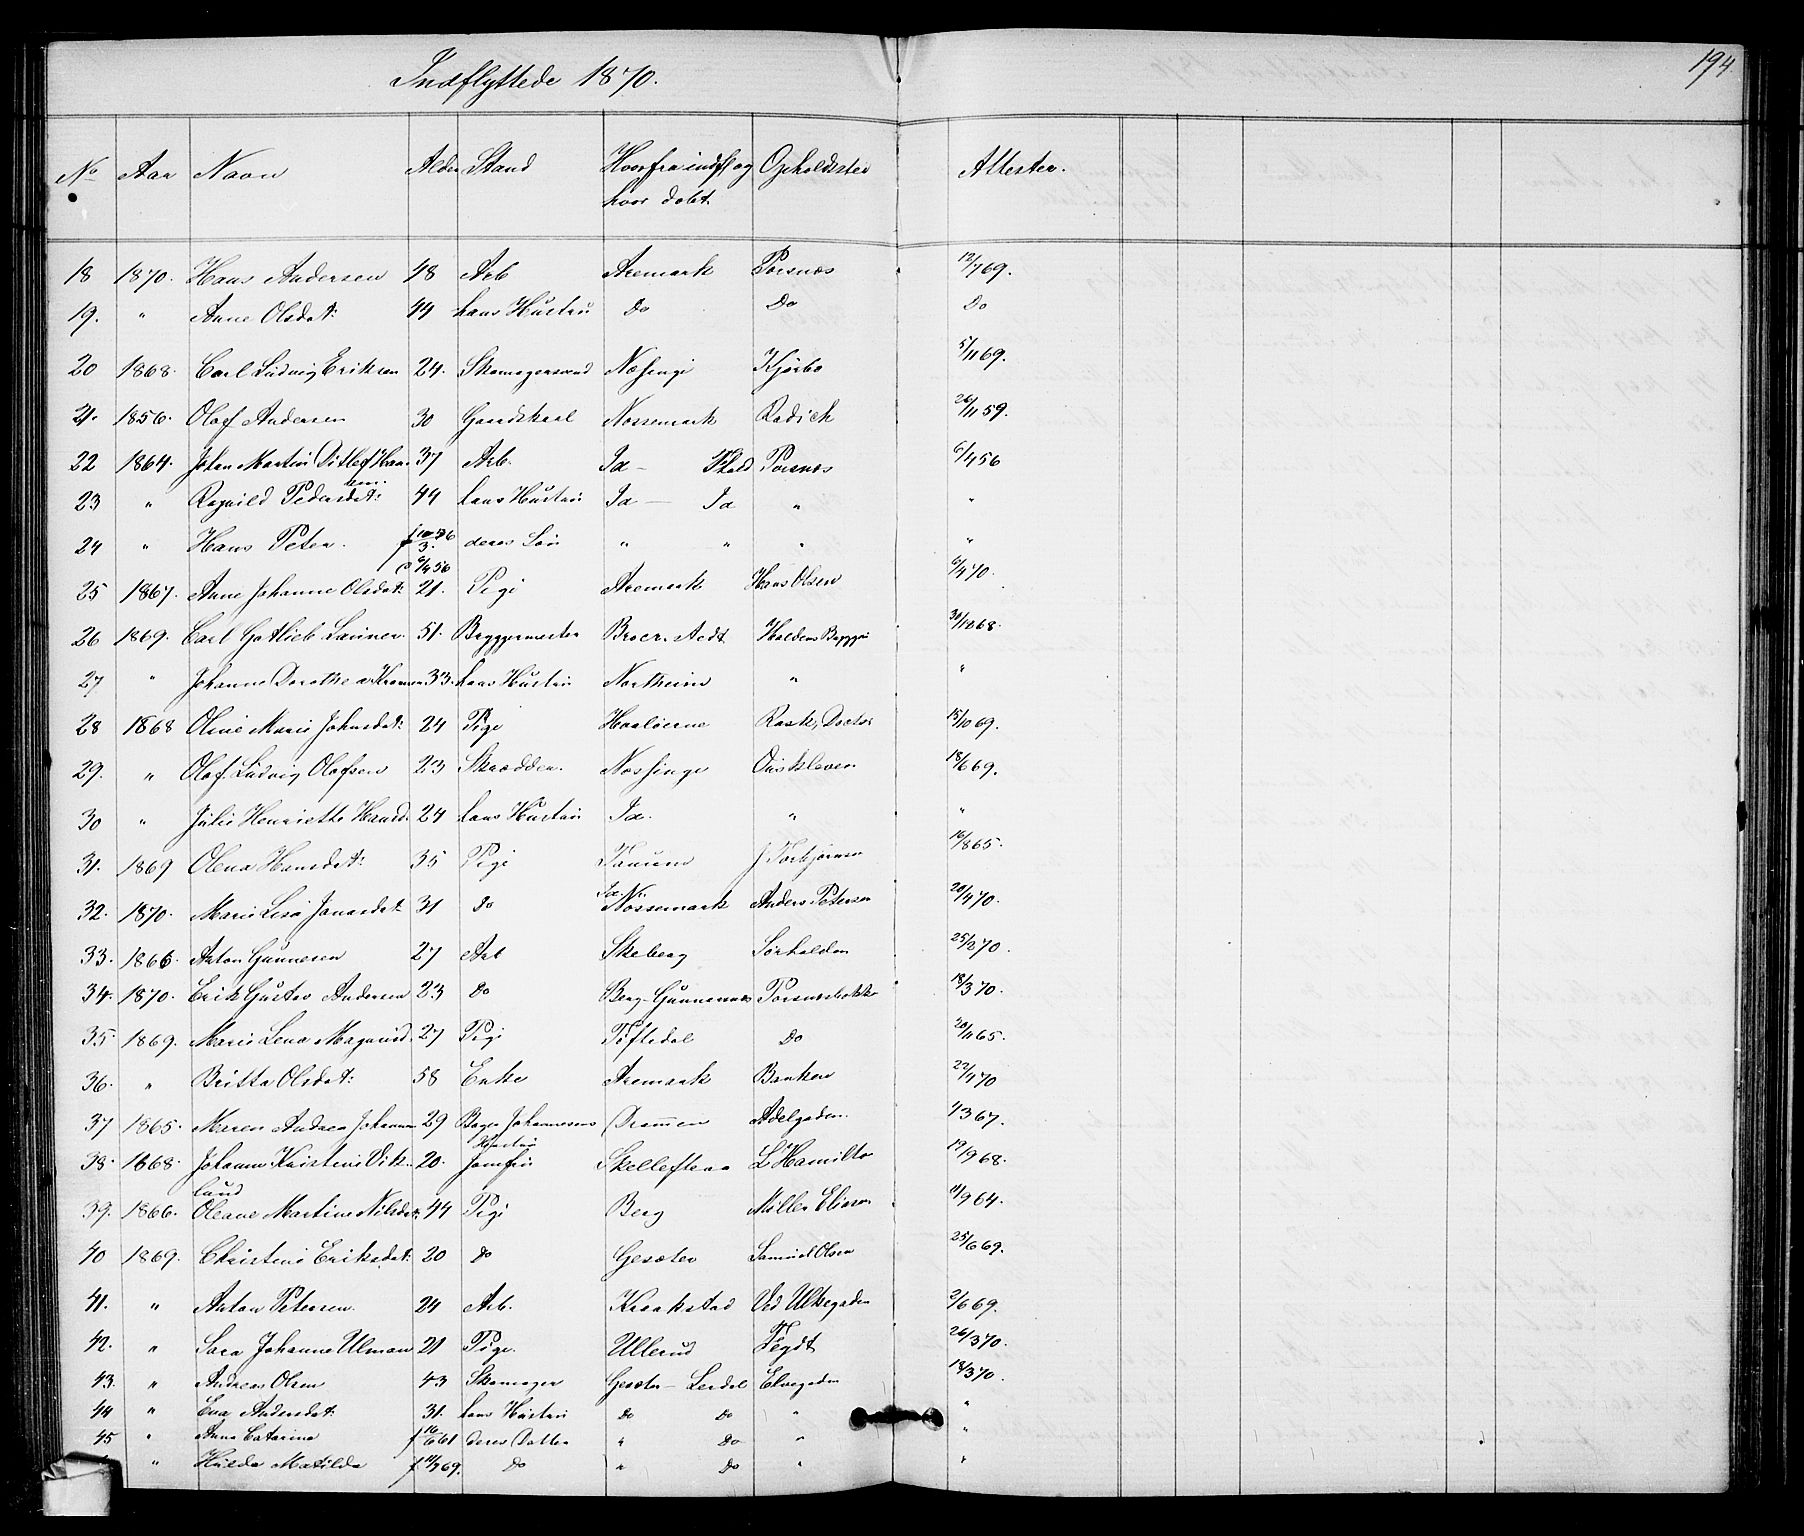 194
Indflyttede 1870.
No Aar Navn Alder Stand Hvorfra indfl. og hvor døbt. Opholdssted Attester.
18 1870. Hans Andersen 48 Arb Aremark Porsnæs 12/7 69.
19. " Anne Olsdat: 44 hans Hustru Do Do Do
20 1868. Carl Ludvig Eriksen 24. Skomagersvend Næsinge Kjørbo 5/11 69.
21. 1856. Olaf Andersen 30 Gaardskarl Nössemark Rødsek 26/11 59.
22 1864. Johan Martin Ditlef Han- 37 Arb. Id - Porsnæs 6/4 56
sen.
23 " Ragnild Pedersdat: 44 hans Hustru Id - Id " "
24 " Hans Peter. f 10/3 56 deres Søn " " " "
C 6/4 56
25 1867. Anne Johanne Olsdat: 21. Pige Aremark Hans Olsen 6/4 70.
26 1869. Carl Gotlieb Launer. 51. Bryggermester Haldens Bryggri 30/12 68.
27 " Johanne Dorothea 33. hans Hustru Northeim " "
28 1868 Oline Marie Johnsdat: 24 Pige Hvaløerne Rask, Doctor 15/10 69.
29. " Olaf Ludvig Olafsen 23 Skrædder. Næssinge Ouskleven 18/6 69.
30 " Julie Henriette Hansd. 24 hans Hustru Id. " "
31. 1869 Olena Hansdat: 35 Pige Tanum J. Torbjørnsen 16/8 65.
32. 1870. Marie Lisa Jonasdat: 31 Do Nössemark Anders Petersen 20/4 70.
33. 1866. Anton Gunnesen 27 Arb Skeberg Sørhalden 25/2 70.
34. 1870. Erik Gustav Andersen 23 Do Berg - Gunnarsnæs Porsnæsbakke 18/3 70.
35. 1869. Marie Lena Magnusd. 27 Pige Töftedal Do 20/11 65.
36. " Britta Olsdat: 58 Enke Aremark Banken 22/4 70
37 1865. Maren Andrea Johannesen 29 Bager Johannesens Drammen Adelgaden. 4/3 67.
Hustru
38. 1868. Johanne Kristine Vik- 20. Jomfru Skelleftea L Hamilto 19/9 68.
lund
39. 1866. Oleane Martine Nilsdat: 44 Pige Berg Møller Eliasen 11/9 64.
40 1869. Christine Eriksdat: 20 Do Gesæter Samuel Olsen 25/6 69.
41. " Anton Petersen. 24 Arb. Kraakstad Ved Ulkegaden 2/6 69.
42. " Sara Johanne Ulman 21 Pige. Ullerud Fegdt 26/3 70.
43. " Andreas Olsen 43 Skomager Gesæter - Lerdal Elvegaden 18/3 70.
44 " Eva Andersdat: 31. hans Hustru Do Do " "
45 " Anna Catarina f 16/6 61 deres Datter " Do " "
" Hulda Matilda f 11/7 69. Do " Do " "